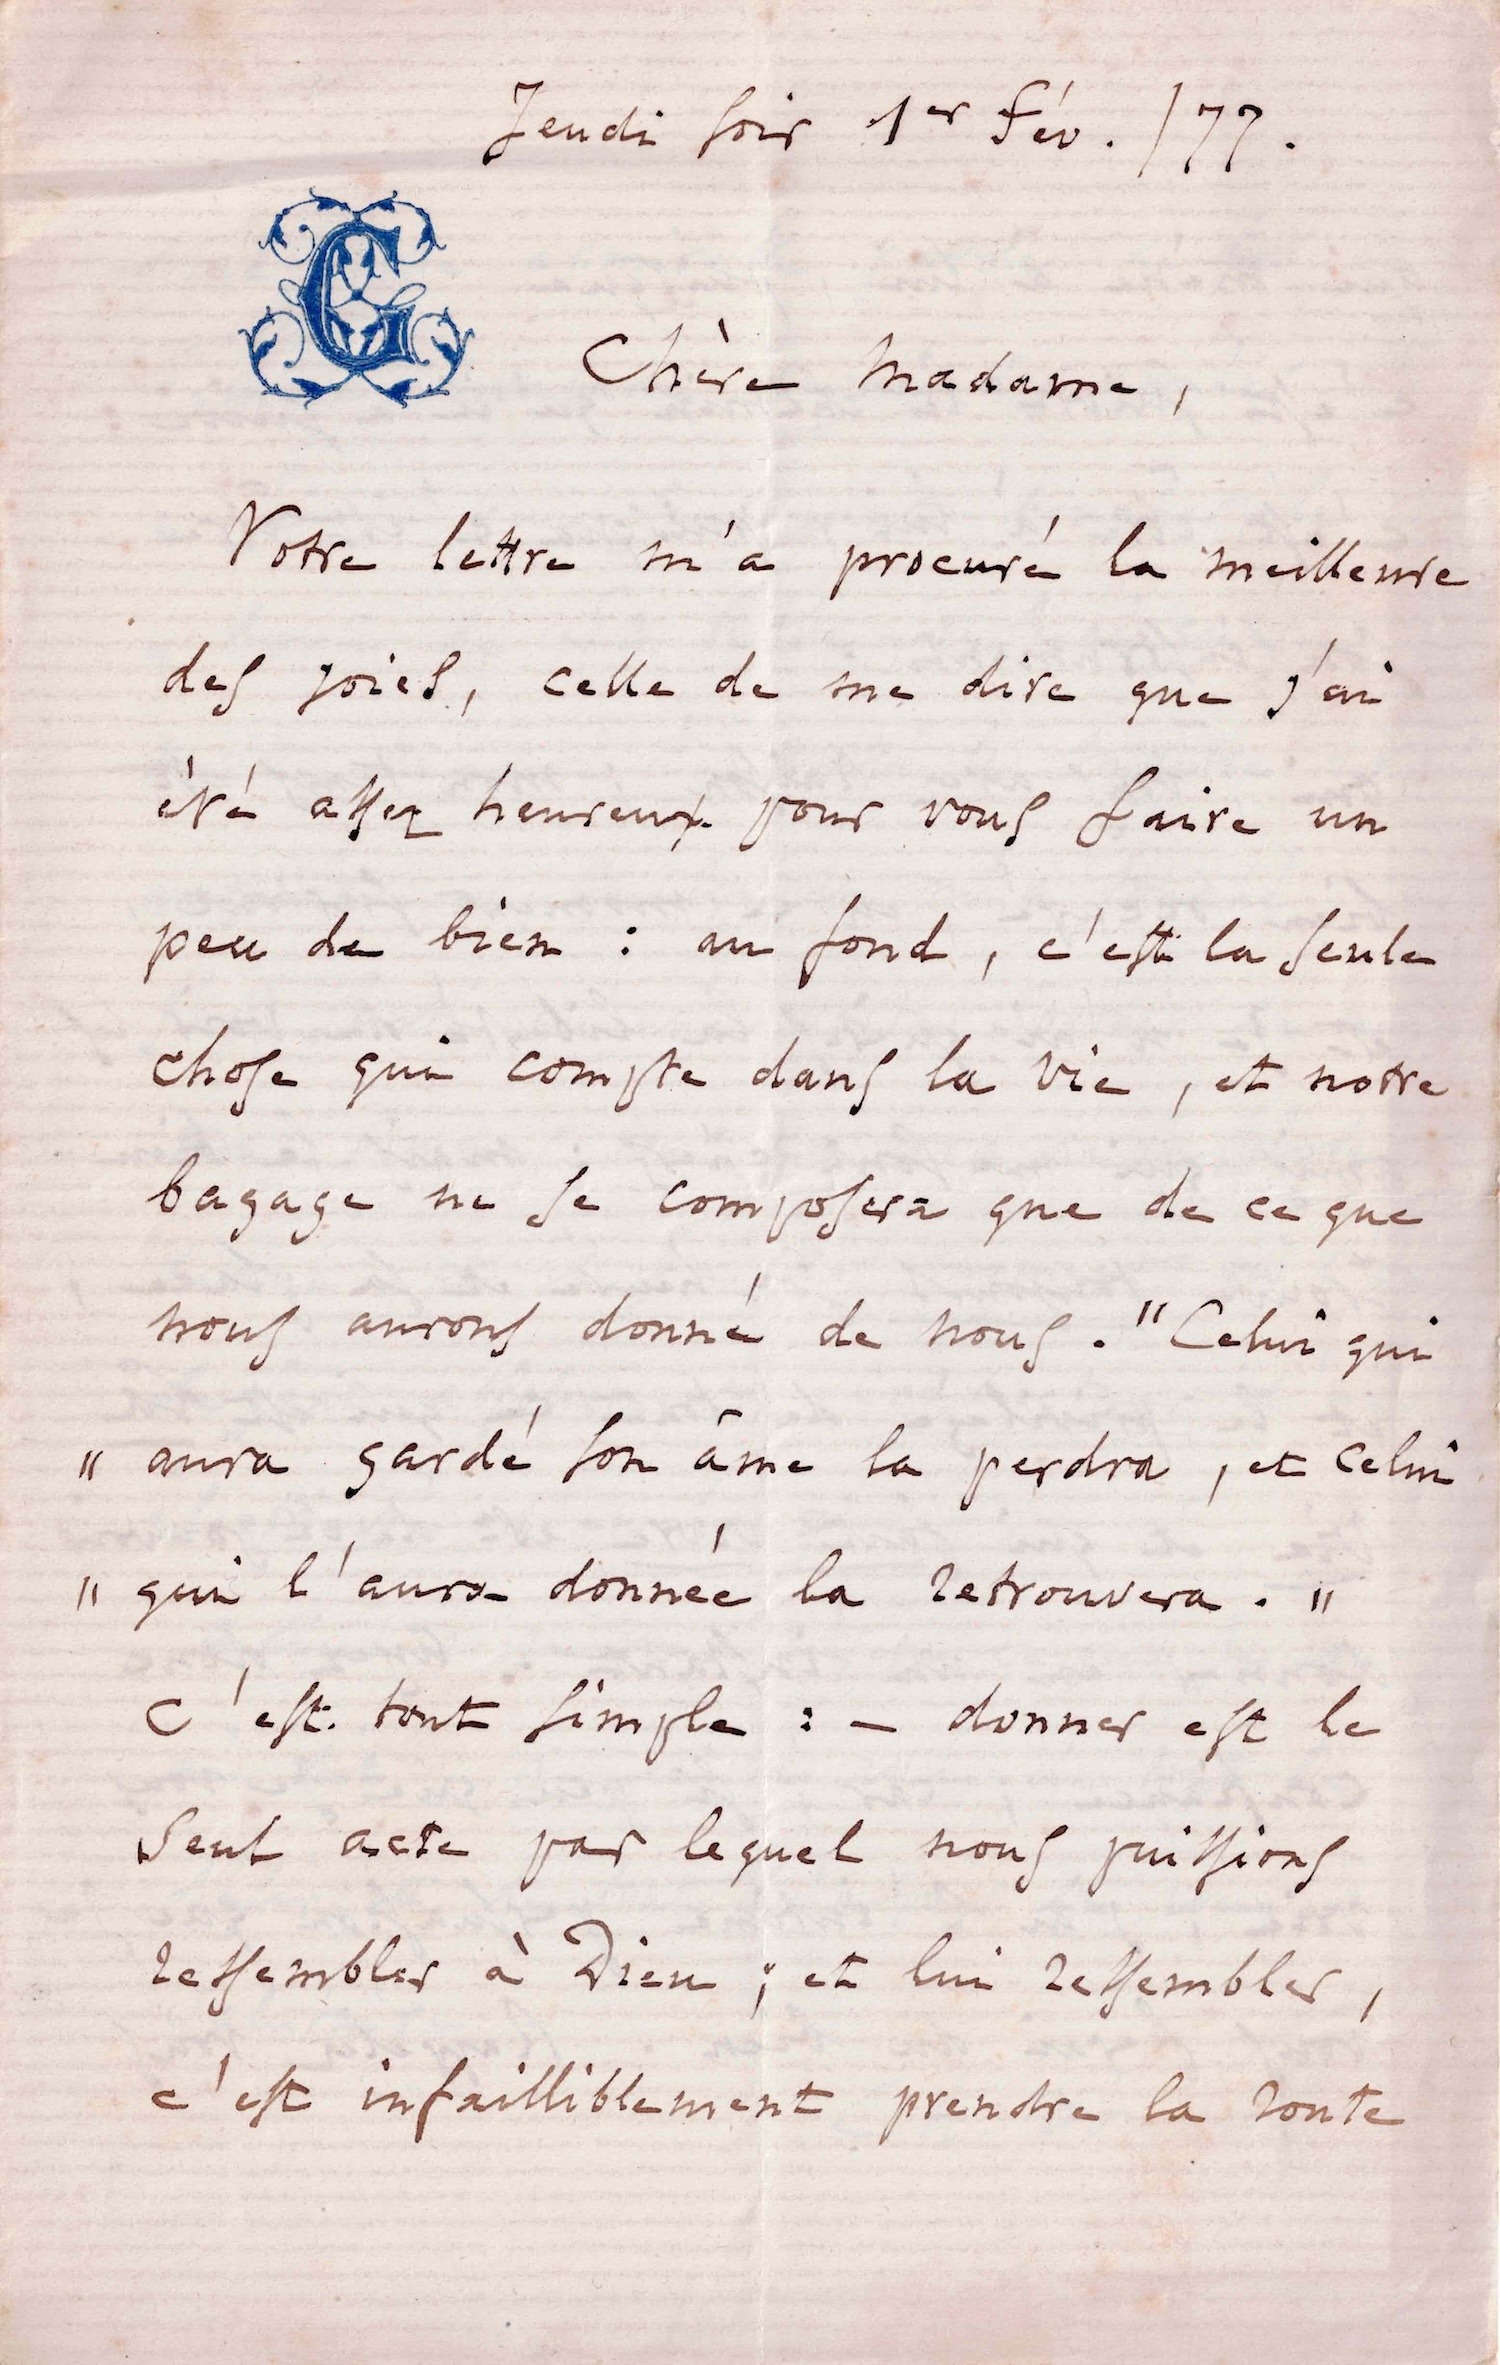 Jeudi soir 1er Fév. /77.
G
Chère Madame,
Votre lettre m'a procuré la meilleure
des joies, celle de me dire que j'ai
été assez heureux pour vous faire un
peu de bien : au fond, c'est la seule
chose qui compte dans la vie, et notre
bagage ne se composera que de ce que
nous aurons donné de nous. "Celui qui
" aura gardé son âme la perdra, et celui
" qui l'aura donnée la retrouvera. "
C'est tout simple : — donner est le
seul acte par lequel nous puissions
ressembler à Dieu ; et lui ressembler,
c'est infailliblement prendre la route